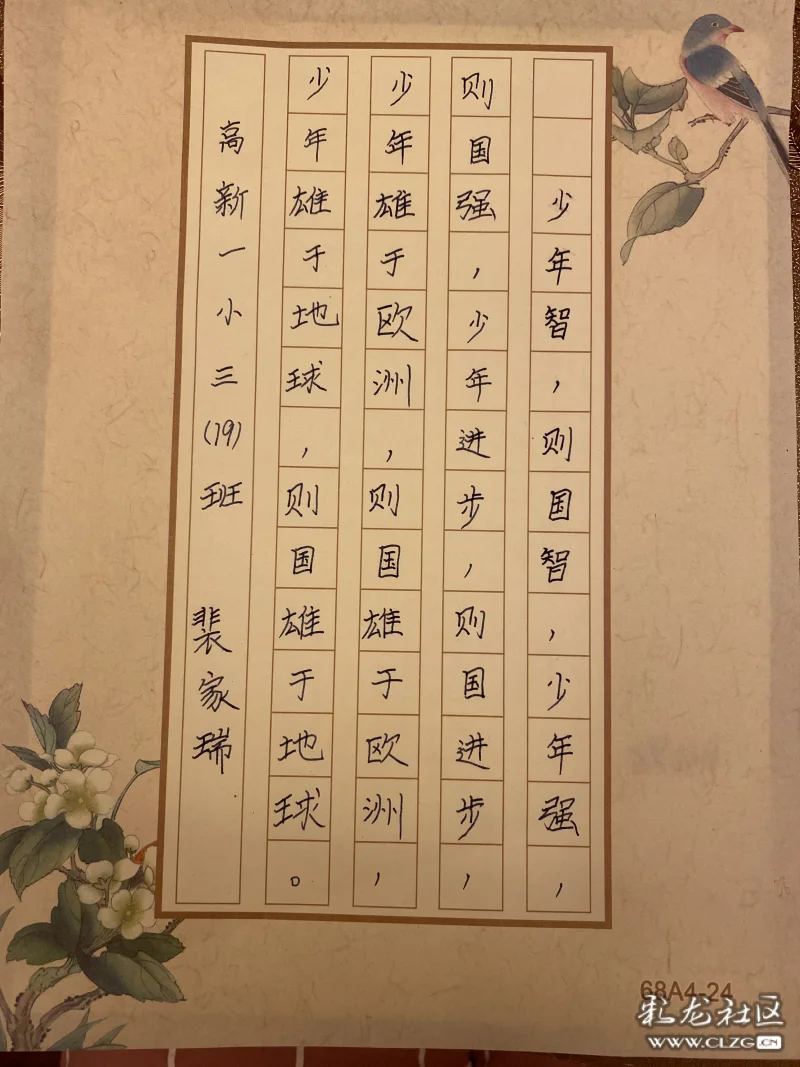 少年智，则国智，少年强，
则国强，少年进步，则国进步，
少年雄于欧洲，则国雄于欧洲，
少年雄于地球，则国雄于地球。
高新一小三(19)班 裴家瑞
68A4-24
彩龙社区
WWW.CLZG.CN